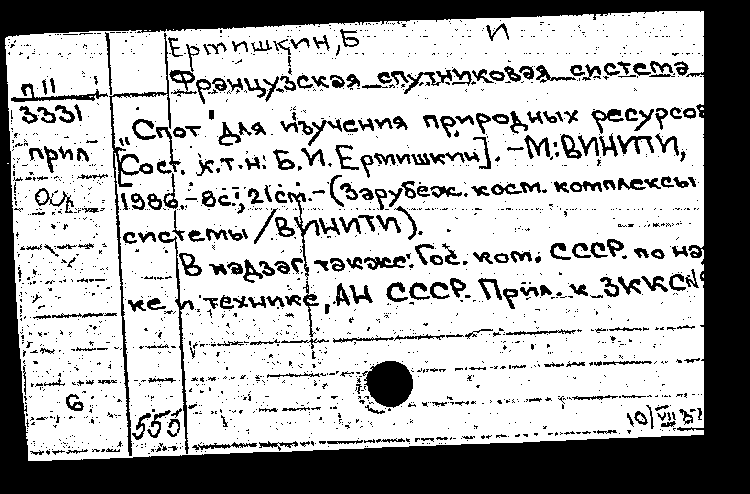 Ермишкин, Б И
Французская спутниковая система
п 11
3331
прил
„Спот" для изучения природных ресурсов
[Сост. к.т.н: Б.И. Ермишкин]. -М:ВИНИТИ,
1986.-8с; 21cm.-(Зарубеж. косм. комплексы
системы /ВИНИТИ).
В надзаг. также: Гос. ком. СССР. по на
ке и технике, АН СССР. Прил. к ЗККС№
6
555
10/VII 87